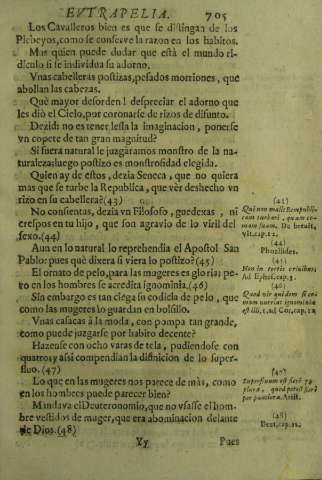 EVTRAPELIA. 705
Los Cavalleros bien es que se distingan de los
Plebeyos, como se conserve la razon en los habitos.
Mas quien puede dudar que està el mundo ri-
diculo si se individua su adorno.
Vnas cabelleras postizas, pesados morriones, que
abollan las cabezas.
Què mayor desorden! despreciar el adorno que
les diò el Cielo, por coronarse de rizos de difunto.
Dezid: no es tener lesa la imaginacion, ponerse
vn copete de tan gran magnitud?
Si fuera natural le juzgaramos monstro de la na-
turaleza: luego postizo es monstrosidad elegida.
Quien ay de estos, dezia Seneca, que no quiera
mas que se turbe la Republica, que vèr deshecho vn
rizo en su cabellera? (43)
No consientas, dezia vn Filosofo, guedexas, ni
crespos en tu hijo, que son agravio de lo viril del
sexo. (44)
Aun en lo natural lo reprehendia el Apostol San
Pablo: pues què dixera si viera lo postizo? (45)
El ornato de pelo, para las mugeres es gloria; pe-
ro en los hombres se acredita ignominia. (46)
Sin embargo es tan ciega su codicia de pelo, que
como las mugeres lo guardan en bolsillo.
Vnas casacas à la moda, con pompa tan grande,
como puede juzgarse por habito decente?
Hazense con ocho varas de tela, pudiendose con
quatro; y assi compendian la difinicion de lo super-
fluo. (47)
Lo que en las mugeres nos parece de màs, como
en los hombres puede parecer bien?
Mandava el Deuteronomio, que no vsasse el hom-
bre vestidos de muger, que era abominacion delante
de Dios. (48)
Yy Pues
(43)
Qui non malit Rempublicam
turbari, quam comam
suam. De brevit.
vit. cap. 12.
(44)
Phozilides.
(45)
Non in tortis crinibus.
Ad Ephes. cap. 5
(46)
Quod vir quidem si comam
nutriat ignominia
est illi. 1. ad Cor. cap. 11
(47)
Superfluum est fieri per
plura, quod potest fieri
per pauciora. Arist.
(48)
Deut. cap. 22.